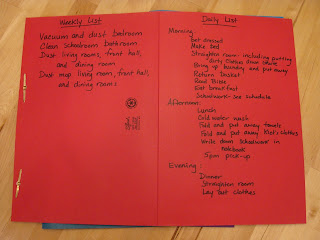 Weekly List
Vacuum and dust bedroom
Clean Schoolroom Bathroom
Dust living rooms, front hall,
and dining room
Dust mop living room, front hall,
and dining rooms
Daily List
Morning:
Get dressed
Make bed
Straighten room - including putting
dirty clothes down
Bring up laundry and put away
Return basket
Read Bible
Eat breakfast
Schoolwork - see schedule
Afternoon:
Lunch
Cold water wash
Fold and put away towels
Fold and put away clothes
Write down Schoolwork in
Notebook
5pm pick-up
Evening:
Dinner
Straighten room
Lay out clothes